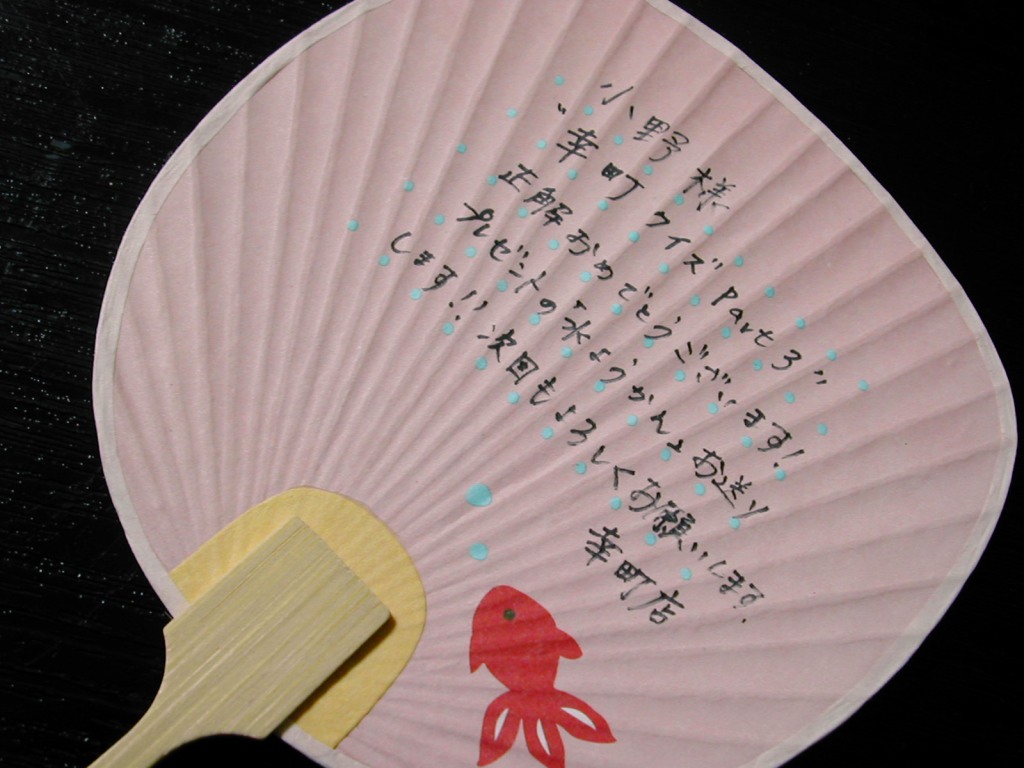 小野様
"幸町クイズ Part3"
正解おめでとうございます!
プレゼントの水ようかんをお送り
します!! 次回もよろしくお願いします。
幸町店